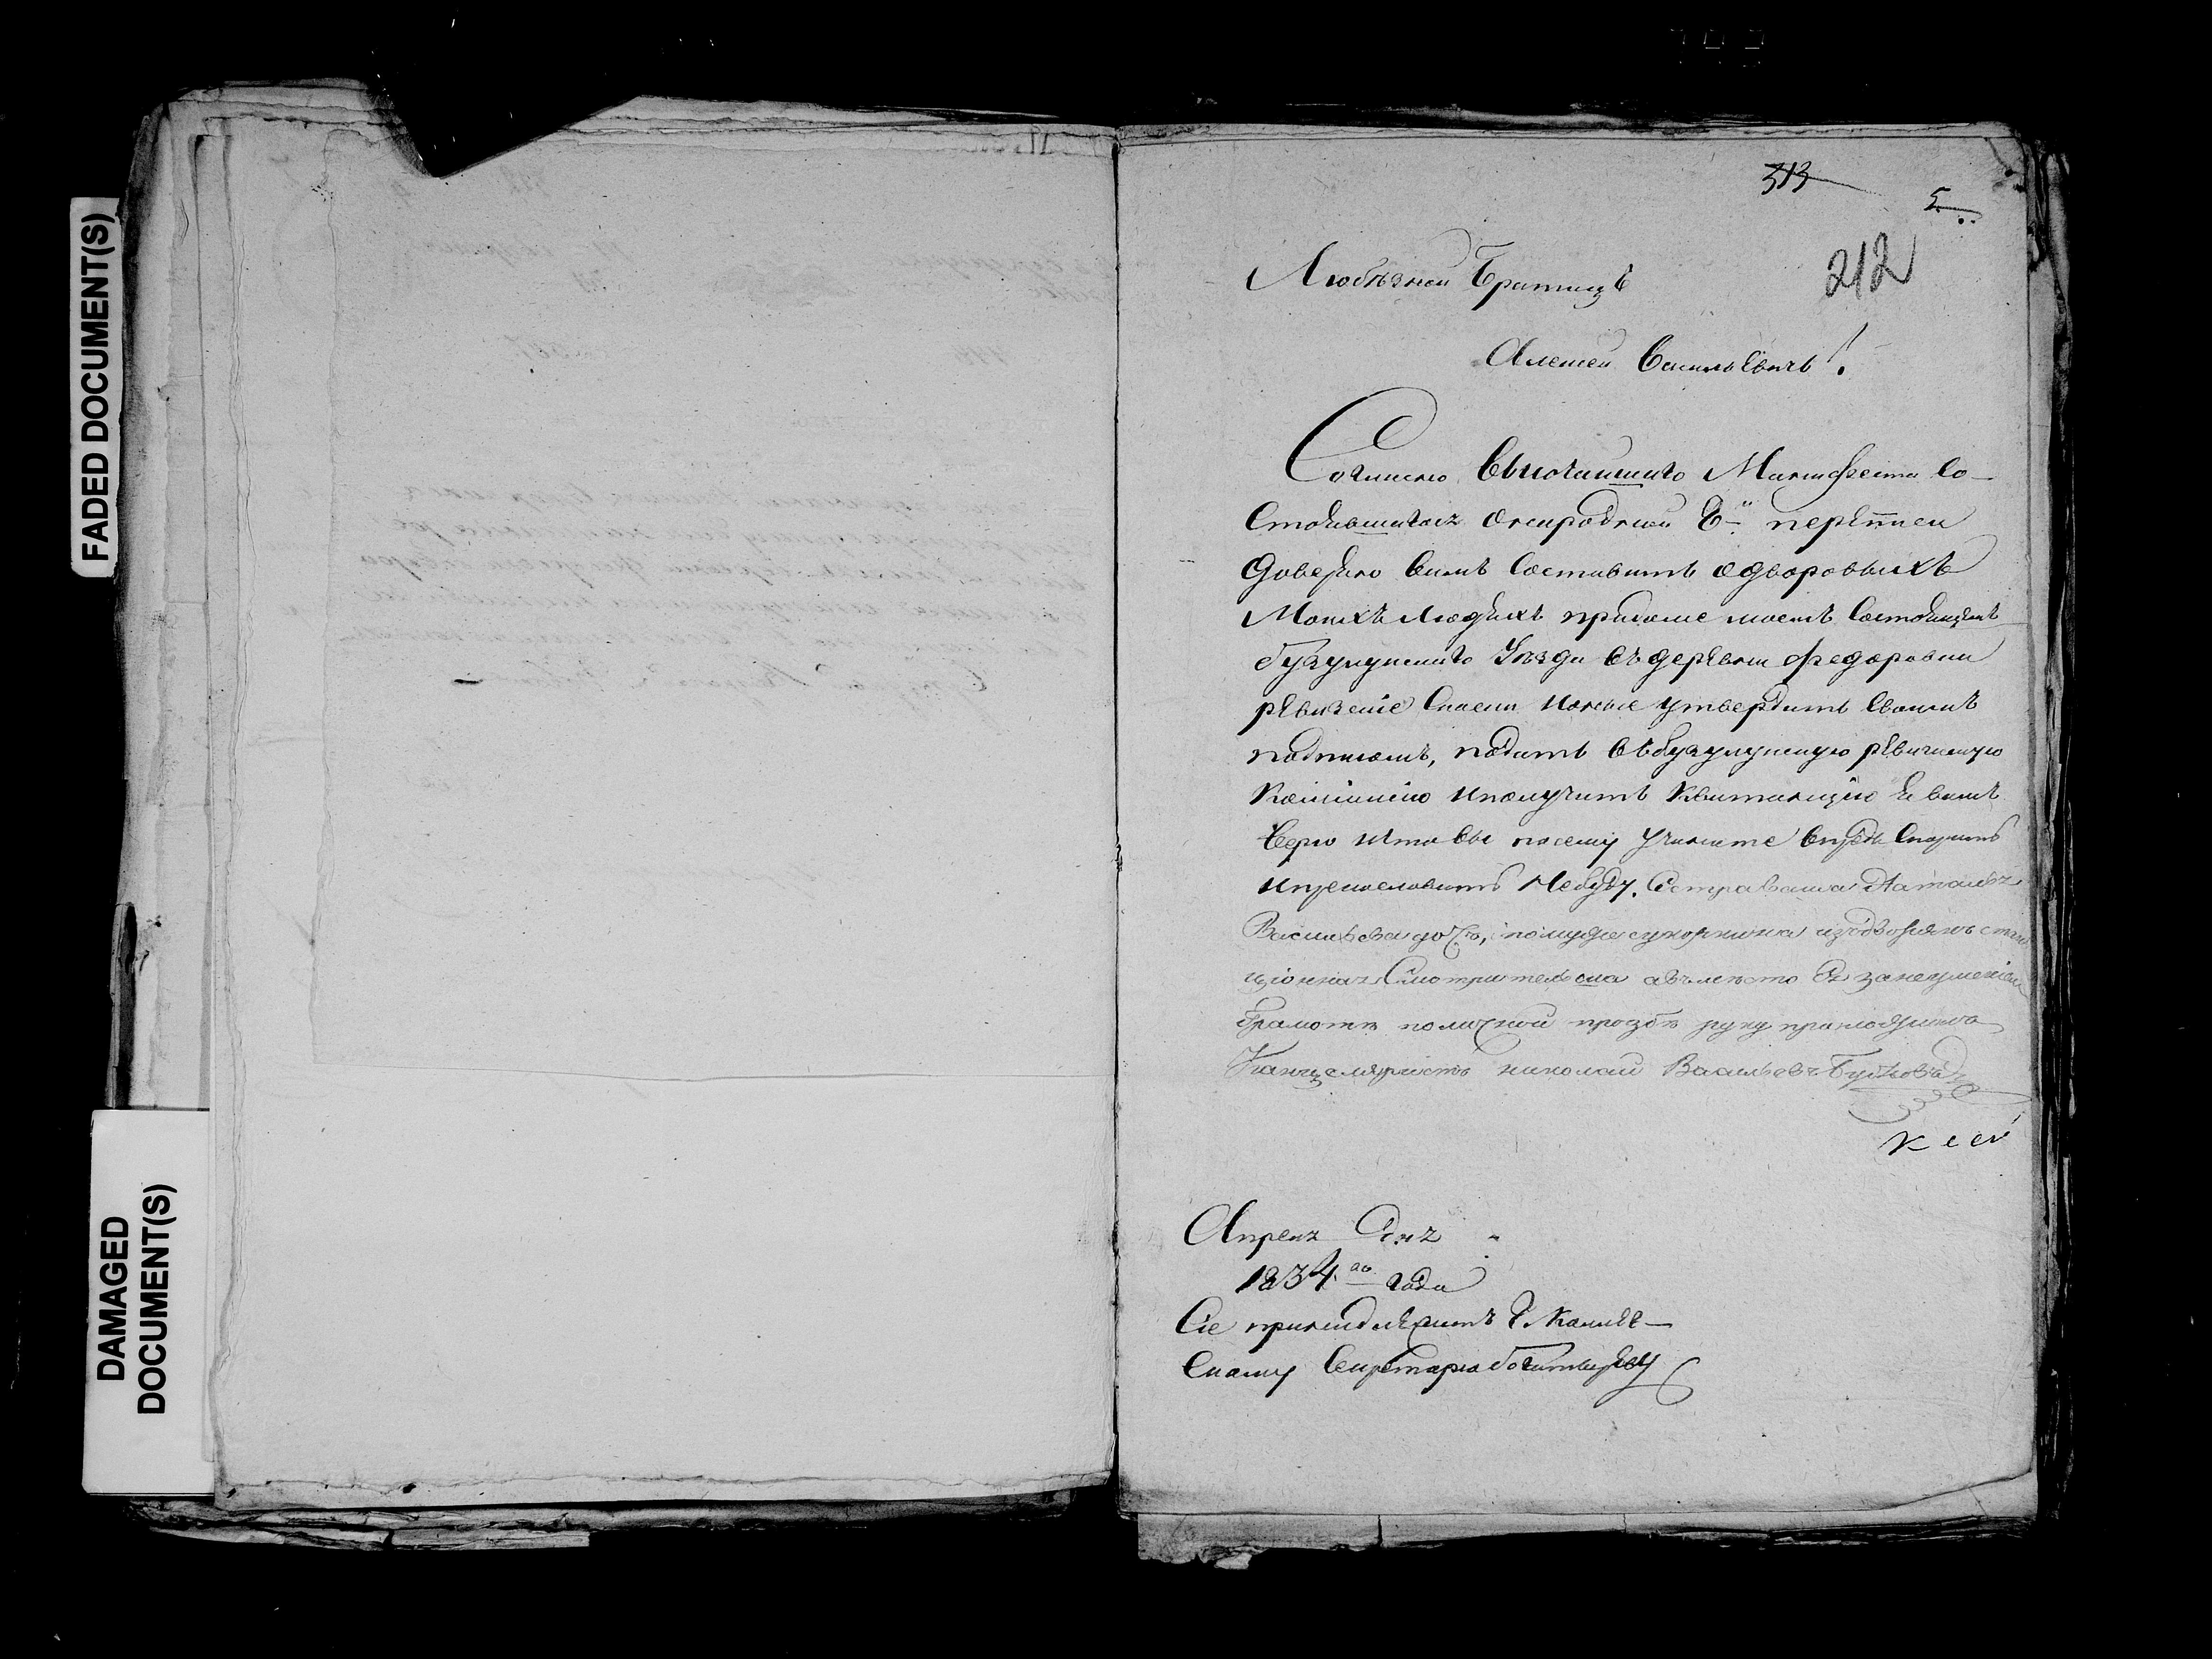 FADED DOCUMENT(S)
DAMAGED
DOCUMENT(S)
313
5
212
Любѣзной Братицъ
Алексей Васильевичь!
Согласно Высочайшаго Манифеста со-
стоявшагося онародной 8-й переписи
доверяю вамъ составить одворовыхъ
Моихъ Людяхъ придоме моемъ состоящемъ
бузулукскаго уѣзда въ деревни федоровки
ревизские скаски ионые утвердить своимъ
подписомъ, подать въбузулукскую ревизскую
Коммисию иполучить Квитанцию я вамъ
верю ичто вы посему учините впредь спорить
ипрекословить Небуду. Сестра ваша Наталья
Васильева дочь, помужу изъдворянъ
Смотрительша авместо Ея занеумениемъ
Грамоте поличной прозбе руку приложилъ
Канцеляристъ николай Васильевъ
Апреля дня
1834.го года
Сие принадлежитъ
скому Секретарю Богатыреву